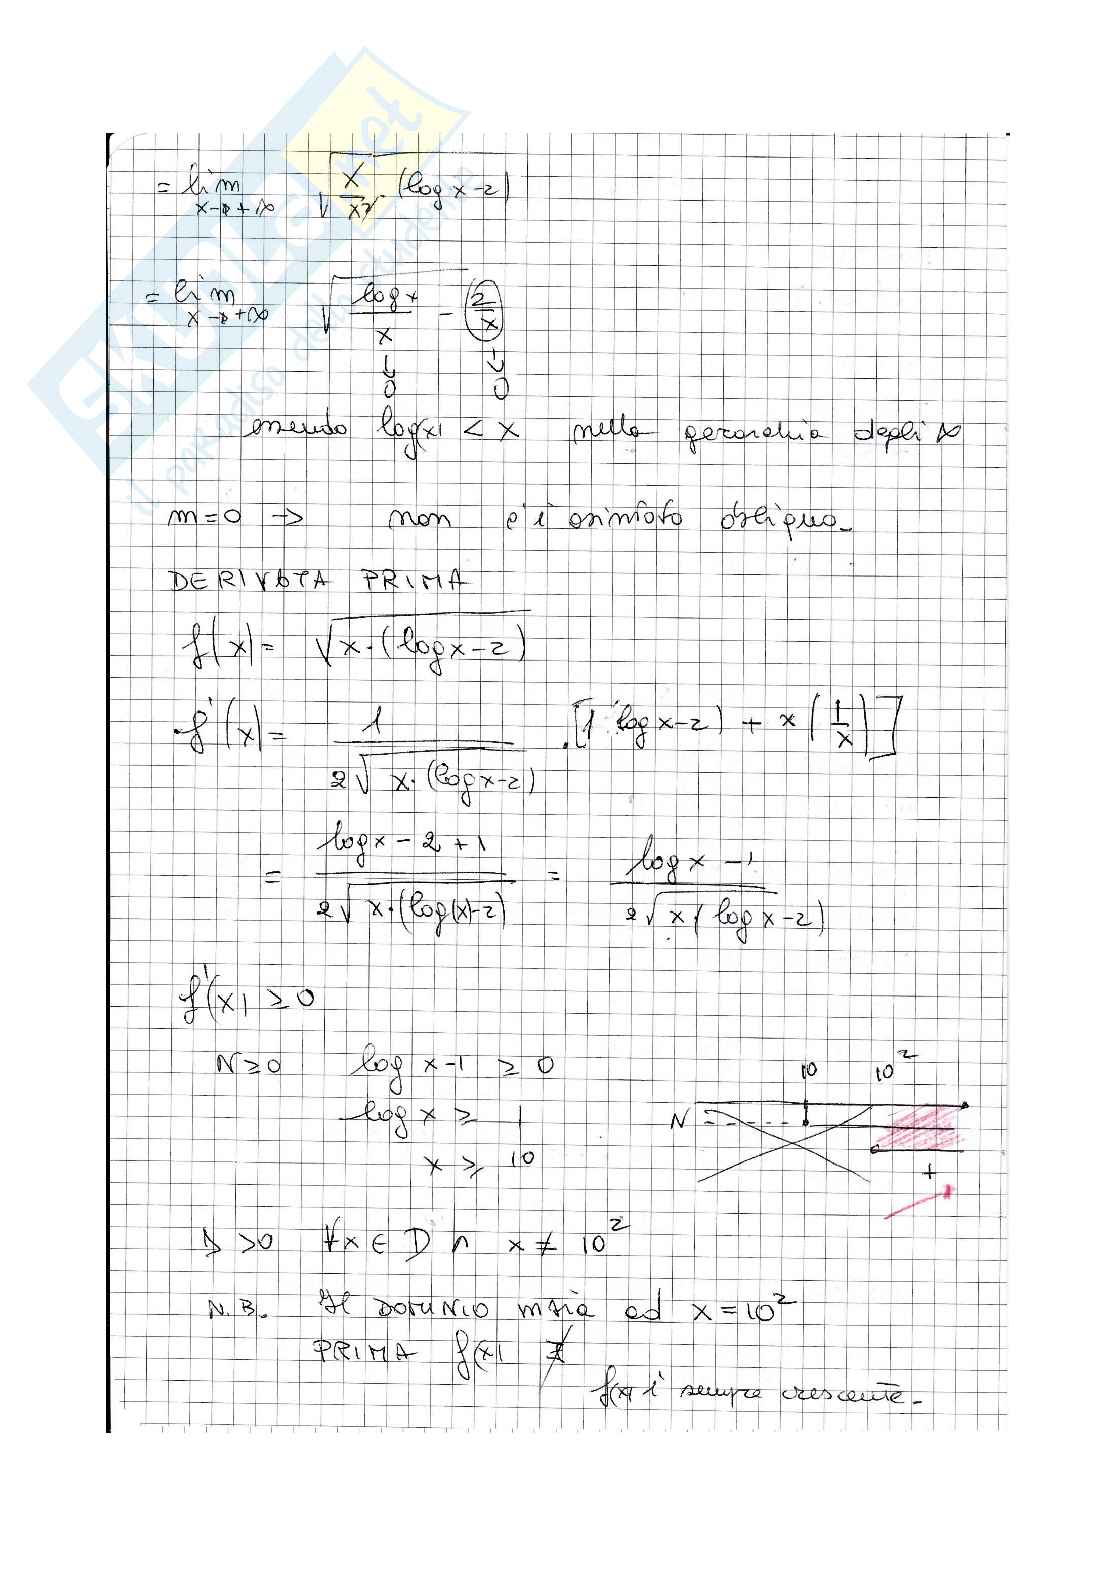 = lim x→+∞ √(x/x² · (log x - 2))
= lim x→+∞ √(log x/x - 2/x)
↓ ↓
0 0
essendo log(x) < x nella gerarchia degli ∞
m=0 → non c'è asintoto obliquo.
DERIVATA PRIMA
f(x) = √(x·(log x - 2))
f'(x) = 1/(2√(x·(log x-2))) · [1 log x-2) + x (1/x)]
= (log x - 2 + 1)/(2√(x·(log(x)-2))) = (log x - 1)/(2√(x(log x-2)))
f'(x) ≥ 0
N≥0 log x-1 ≥ 0
log x ≥ 1
x ≥ 10
10 10²
N
+
D >0 ∀x ∈ D ∩ x ≠ 10²
N.B. Il DOMINIO inizia ad x = 10²
PRIMA f(x) ∄
f(x) è sempre crescente.
SKUOLA.net
il paradiso dello studente